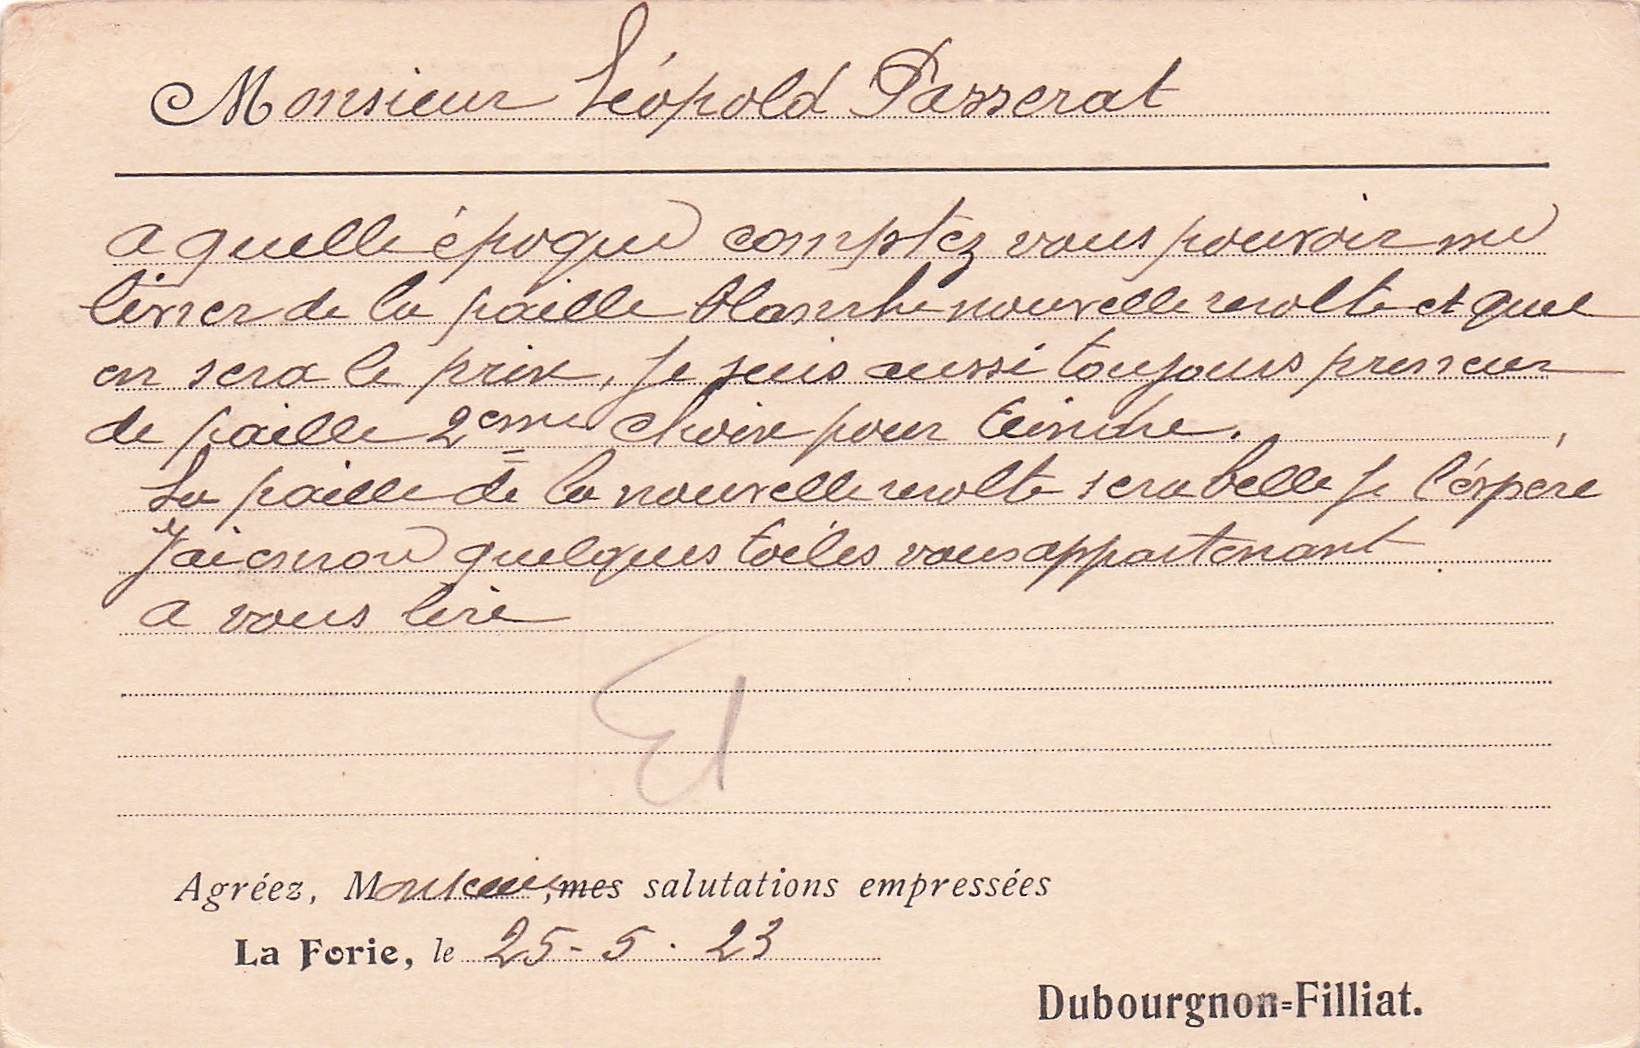 Monsieur Léopold Passerat
a quelle époque comptez vous pouvoir me
livrer de la paille blanche nouvelle recolte et quel
en sera le prix, je suis aussi toujours preneur
de paille 2eme choix pour teindre.
La paille de la nouvelle recolte sera belle je l'éspére
J'ai encore quelques toiles vous appartenant
a vous lire
El
Agréez, Monsieur, mes salutations empressées
La Forie, le 25-5-23
Dubourgnon=Filliat.